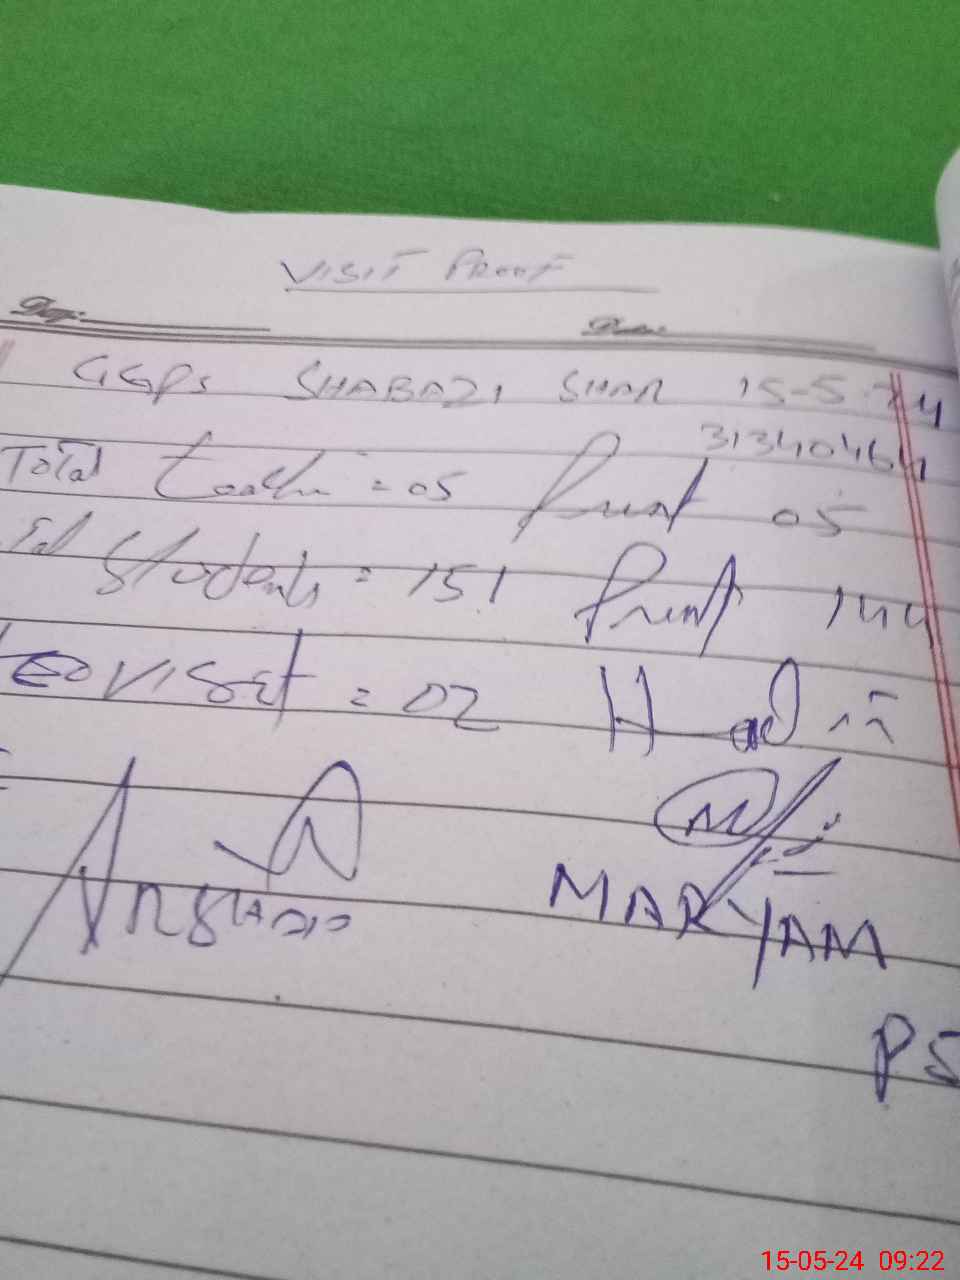 VISIT PROOF
Day: Date:
GGPS SHABAZI SHAR 15-5-24
31340464
Total teacher = 05 Prent 05
Students = 151 Prent 144
visit = 02 Head
MARYAM
PS
15-05-24 09:22